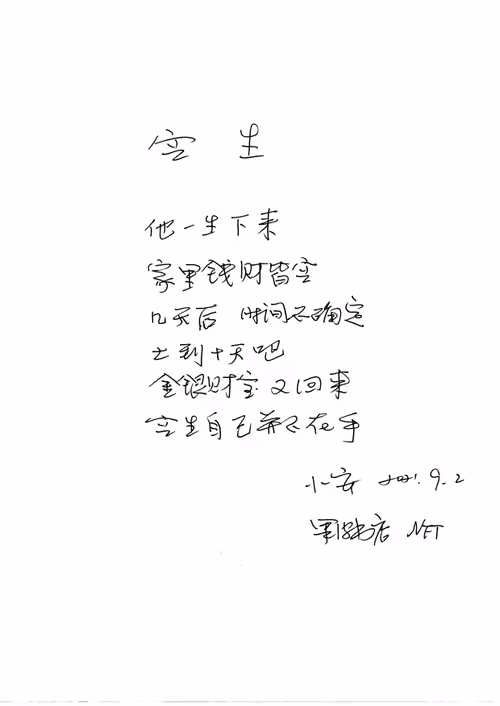 空 生
他一生下来
家里钱财皆空
几天后 时间不确定
七到十天吧
金银财宝又回来
空生自己并不在乎
小安 2021.9.2
店 NFT